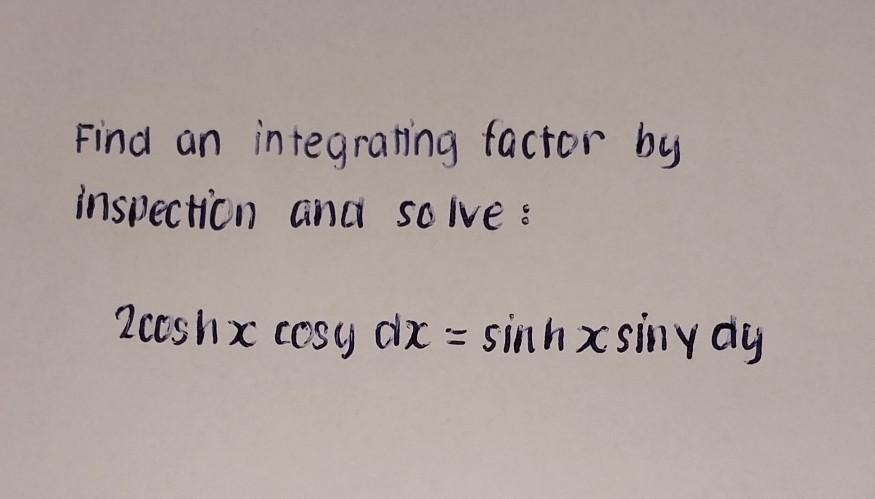 Find an integrating factor by
inspection and solve :
2cosh x cosy dx = sinh x siny dy